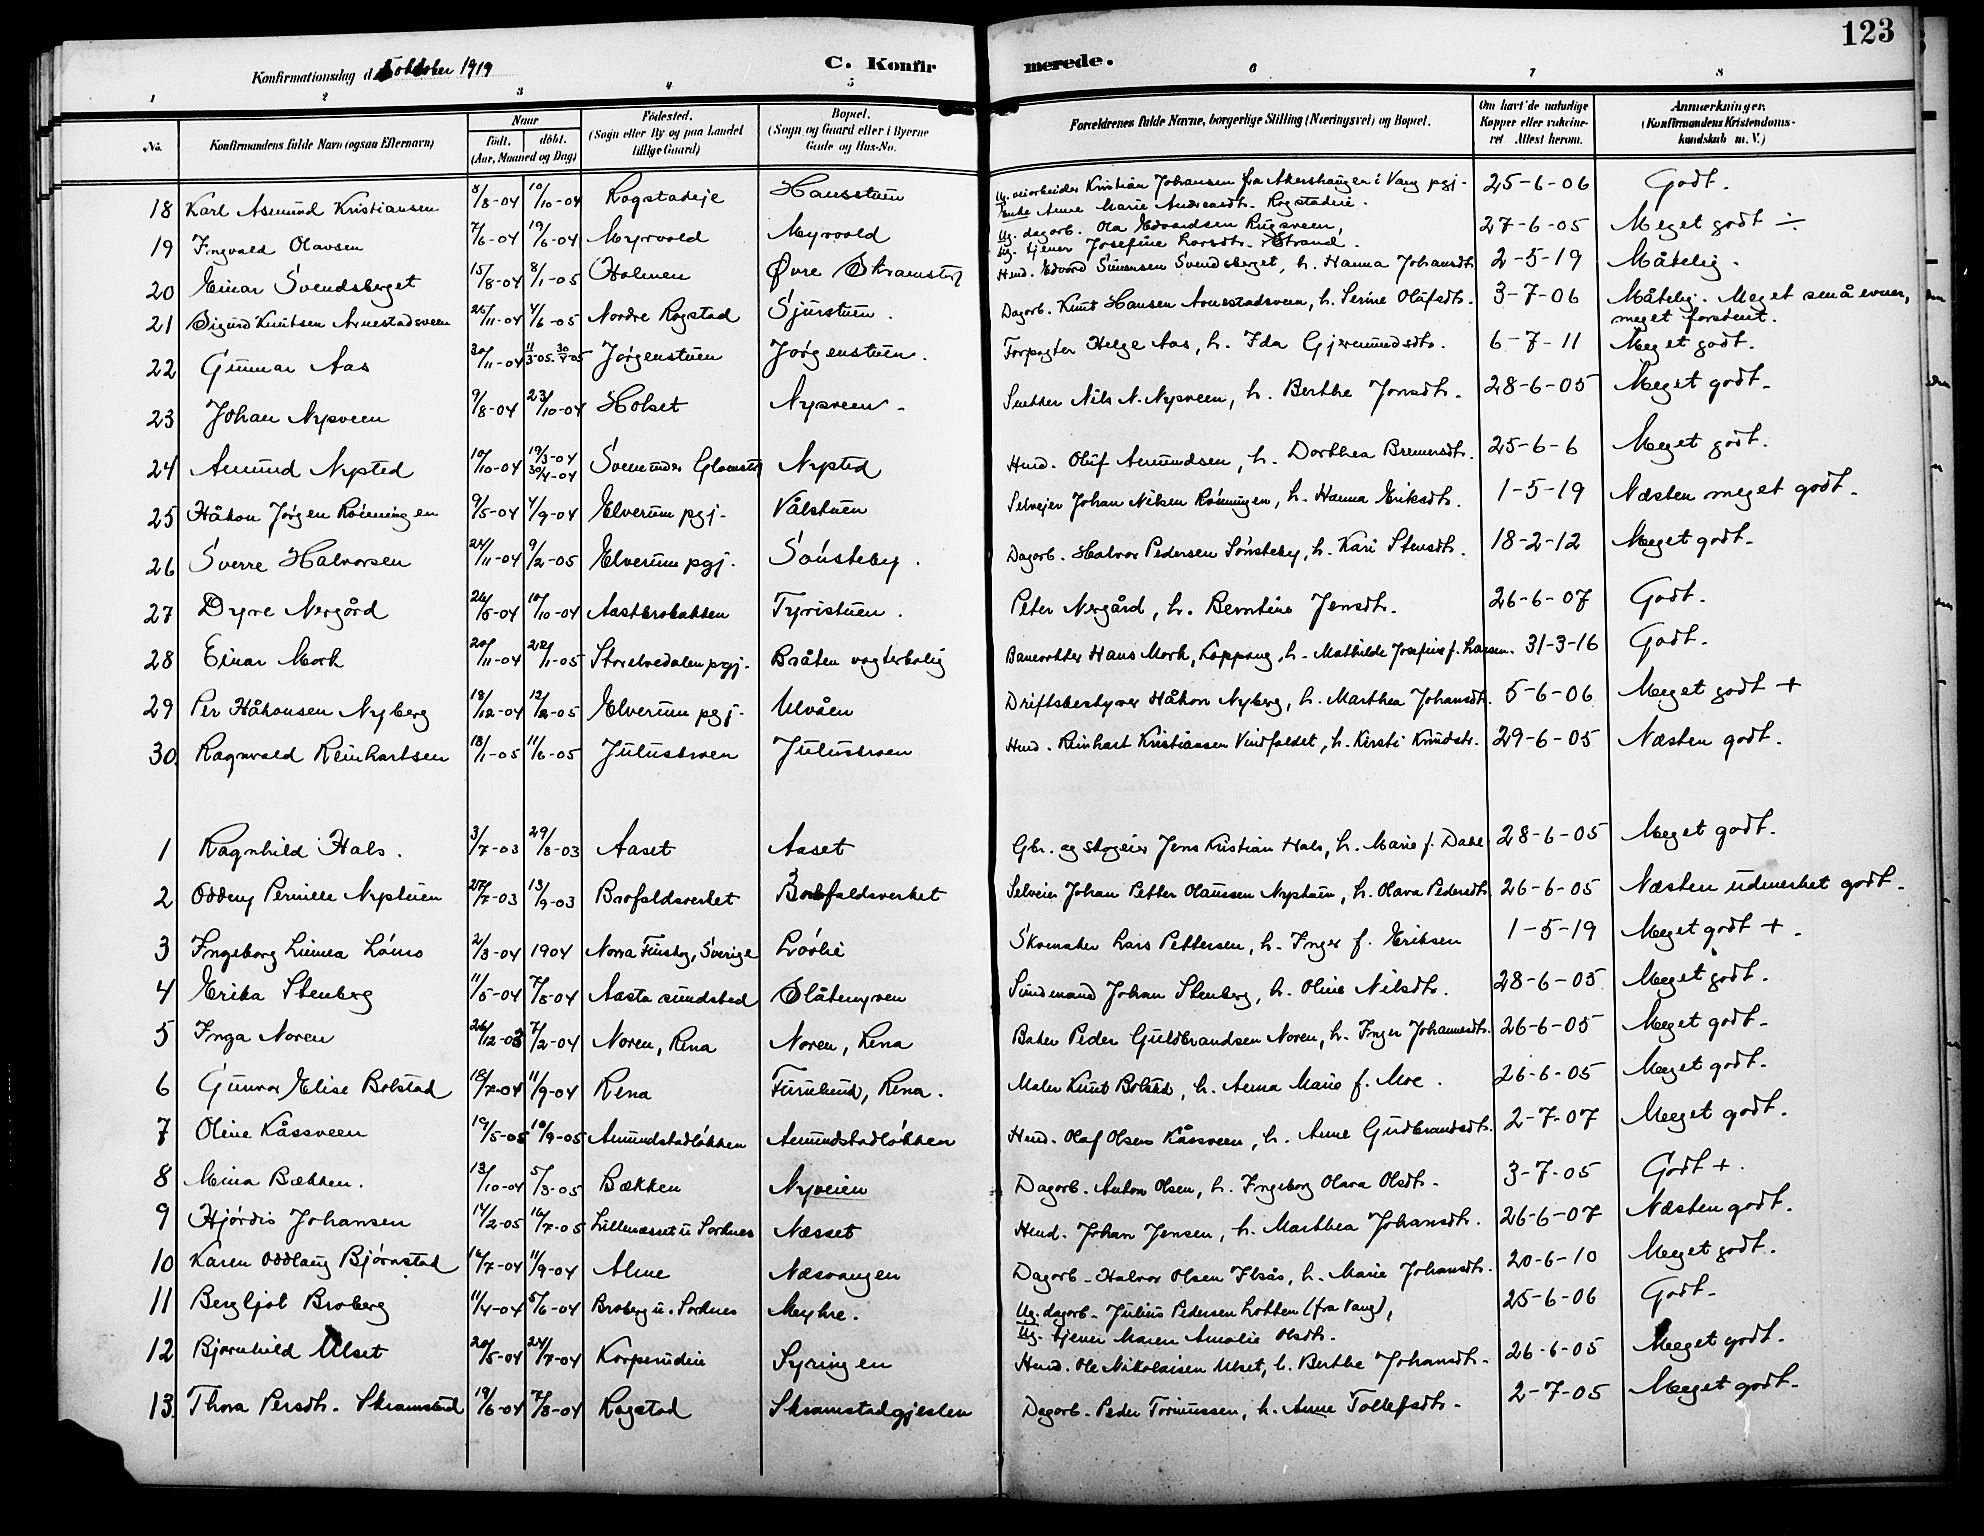 123
Konfirmationsdag d. 5 oktober 1919
C. Konfirmerede.
1 2 3 4 5 6 7 8
No. Konfirmandens fulde Navn (ogsaa Efternavn) Naar født. døbt. (Aar, Maaned og Dag) Fødested. (Sogn eller By og paa Landet tillige Gaard) Bopæl. (Sogn og Gaard eller i Byerne Gade og Hus-No. Forældrenes fulde Navne, borgerlige Stilling (Næringsvei) og Bopæl. Om havt de naturlige Kopper eller vaccineret Attest herom. Anmærkninger. (Konfirmandens Kristendomskundskab m. V.)
18 Karl Asmund Kristiansen 8/8-04 10/10-04 Rogstadeje Hansstuen Kristian Johansen fra Akershaugen i Vang pgj. 25-6-06 Godt.
Enke Anne Marie Andreasdt. Rogstadeie.
19 Ingvald Olavsen 7/6-04 19/6-04 Myrvold Myrvold Ug. dagarb. Ola Edvardsen Rugsveen, 27-6-05 Meget godt ÷
Ug. tjener Josefine Larsdt. Strand.
20 Einar Svendsberget 15/8-04 8/1-05 Holmen Øvre Skramstad Husd. Edvard Simensen Svendsberget, h. Hanna Johansdt. 2-5-19 Måtelig.
21 Sigurd Knutsen Arnestadsveen 25/11-04 4/6-05 Nordre Rogstad Sjurstuen. Dagarb. Knut Hansen Arnestadsveen, h. Serine Olufsdt. 3-7-06 Måtelig. Meget små evner, meget forsømt.
22 Gunnar Aas 30/11-04 11/3-05 30/4-05 Jørgenstuen Jørgenstuen. Forpagter Helge Aas, h. Ida Gjermundsdt. 6-7-11 Meget godt.
23 Johan Nysveen 9/8-04 23/10-04 Holset Nysveen. Snekker Nils N. Nysveen, h. Berthe Jonsdt. 28-6-05 Meget godt.
24 Amund Nysted 10/10-04 19/3-04 30/4-04 Sveen under Glomstad Nysted Husd. Oluf Amundsen, h. Dorthea Bremersdt. 25-6-6 Meget godt.
25 Håkon Jørgen Rønningen 9/5-04 4/9-04 Elverum pgj. Vålstuen Selveier Johan Nilsen Rønningen, h. Hanna Eriksdt. 1-5-19 Næsten meget godt.
26 Sverre Halvorsen 22/11-04 9/2-05 Elverum pgj. Sønsteby. Dagarb. Halvor Pedersen Sønsteby, h. Kari Stensdt. 18-2-12 Meget godt.
27 Dyre Nergård 26/5-04 10/10-04 Aastbrobakken Tyristuen. Peter Nergård, h. Berntine Jensdt. 26-6-07 Godt.
28 Einar Mork 20/11-04 22/1-05 Storelvedalen pgj. Bråten vogterbolig Banevokter Hans Mork, Koppang, h. Mathilde Josefine f. Larsen. 31-3-16 Godt.
29 Per Håkonsen Nyberg 18/12-04 12/2-05 Elverum pgj. Ulvåen Driftsbestyrer Håkon Nyberg, h. Marthea Johansdt. 5-6-06 Meget godt +
30. Ragnvald Reinhartsen 18/1-05 11/6-05 Julussmoen Julussmoen Husd. Reinhart Kristiansen Vindfaldet, h. Kirsti Knudsdt. 29-6-05 Næsten godt.
1 Ragnhild Hals. 3/7-03 29/8-03 Aaset Aaset Gbr. og skogeier Jens Kristian Hals, h. Marie f. Dahl 28-6-05 Meget godt.
2 Oddny Pernille Nystuen 27/7-03 13/9-03 Brofoldsverket Brofoldsverket Selveier Johan Petter Olaussen Nystuen, h. Olava Pedersdt. 26-6-05 Næsten udmerket godt.
3 Ingeborg Linnea Lømo 2/3-04 1904 Norra Finskog, Sverige Lørlie Skomaker Lars Pettersen, h. Inger f. Eriksen 1-5-19 Meget godt +.
4 Erika Stenberg 11/5-04 7/8-04 Aasta sundsted Slåtmyren Sundmand Johan Stenberg, h. Oline Nilsdt. 28-6-05 Meget godt.
5 Inga Noren 26/12-03 7/2-04 Noren, Rena Noren, Rena Baker Peder Guldbrandsen Noren, h. Inger Johannesdt. 26-6-05 Meget godt.
6 Gunvor Elise Bolstad 18/7-04 11/9-04 Rena Furulund, Rena. Maler Knut Bolstad, h. Anna Marie f. Moe. 26-6-05 Meget godt.
7 Oline Kåssveen 19/5-05 10/9-05 Amundstadløkken Amundstadløkken Husd. Olaf Olsen Kåssveen, h. Anne Gudbrandsdt. 2-7-07 Meget godt.
8 Mina Bækken. 13/10-04 5/3-05 Bækken Nyveien Dagarb. Anton Olsen, h. Ingeborg Olava Olsdt. 3-7-05 Godt +.
9 Hjørdis Johansen 14/2-05 16/7-05 Lillenæsset u. Sorknes Næsset Husd. Johan Jensen, h. Marthea Johansdt. 26-6-07 Næsten godt.
10 Karen Oddlaug Bjørnstad 16/7-04 11/9-04 Alme Næsvangen Dagarb. Halvor Olsen Ilsås, h. Marie Johansdt. 20-6-10 Meget godt.
11 Bergljot Broberg 11/4-04 5/6-04 Broberg u. Sorknes Myhre. Ug. dagarb. Julius Pedersen Lotten (fra Vang), 25-6-06 Godt.
Ug. tjener Maren Amalie Olsdt.
12 Bjørnhild Ulset 20/5-04 24/7-04 Korperudeie Syringen Husd. Ole Nikolaisen Ulset, h. Berthe Johansdt. 26-6-05 Meget godt.
13. Thora Persdt. Skramstad 19/6-04 7/8-04 Rogstad Skramstadgjeslen Dagarb. Peder Tormussen, h. Anne Tollefsdt. 2-7-05 Meget godt.